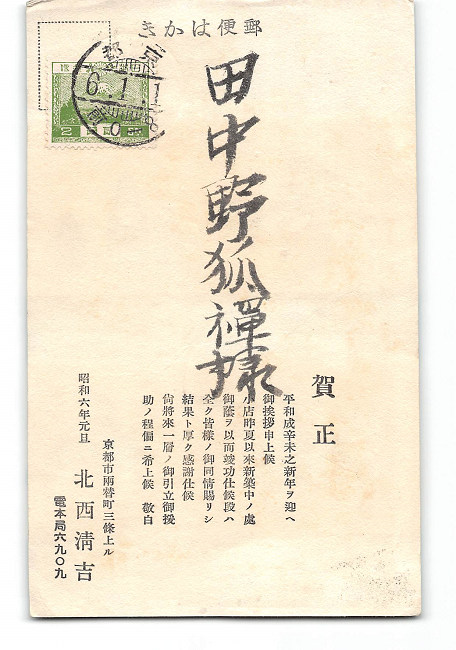 郵便はかき
京都
6.1.1
田中野狐禅様
賀正
平和成辛未之新年ヲ迎ヘ
御挨拶申上候
小店昨夏以来新築中ノ處
御蔭ヲ以而竣功仕候段ハ
全ク皆様ノ御同情賜リシ
結果ト厚ク感謝仕候
尚將來一層ノ御引立御援
助ノ程偏ニ希上候 敬白
昭和六年元旦
京都市両替町三條上ル
北西清吉
電本局六九〇九